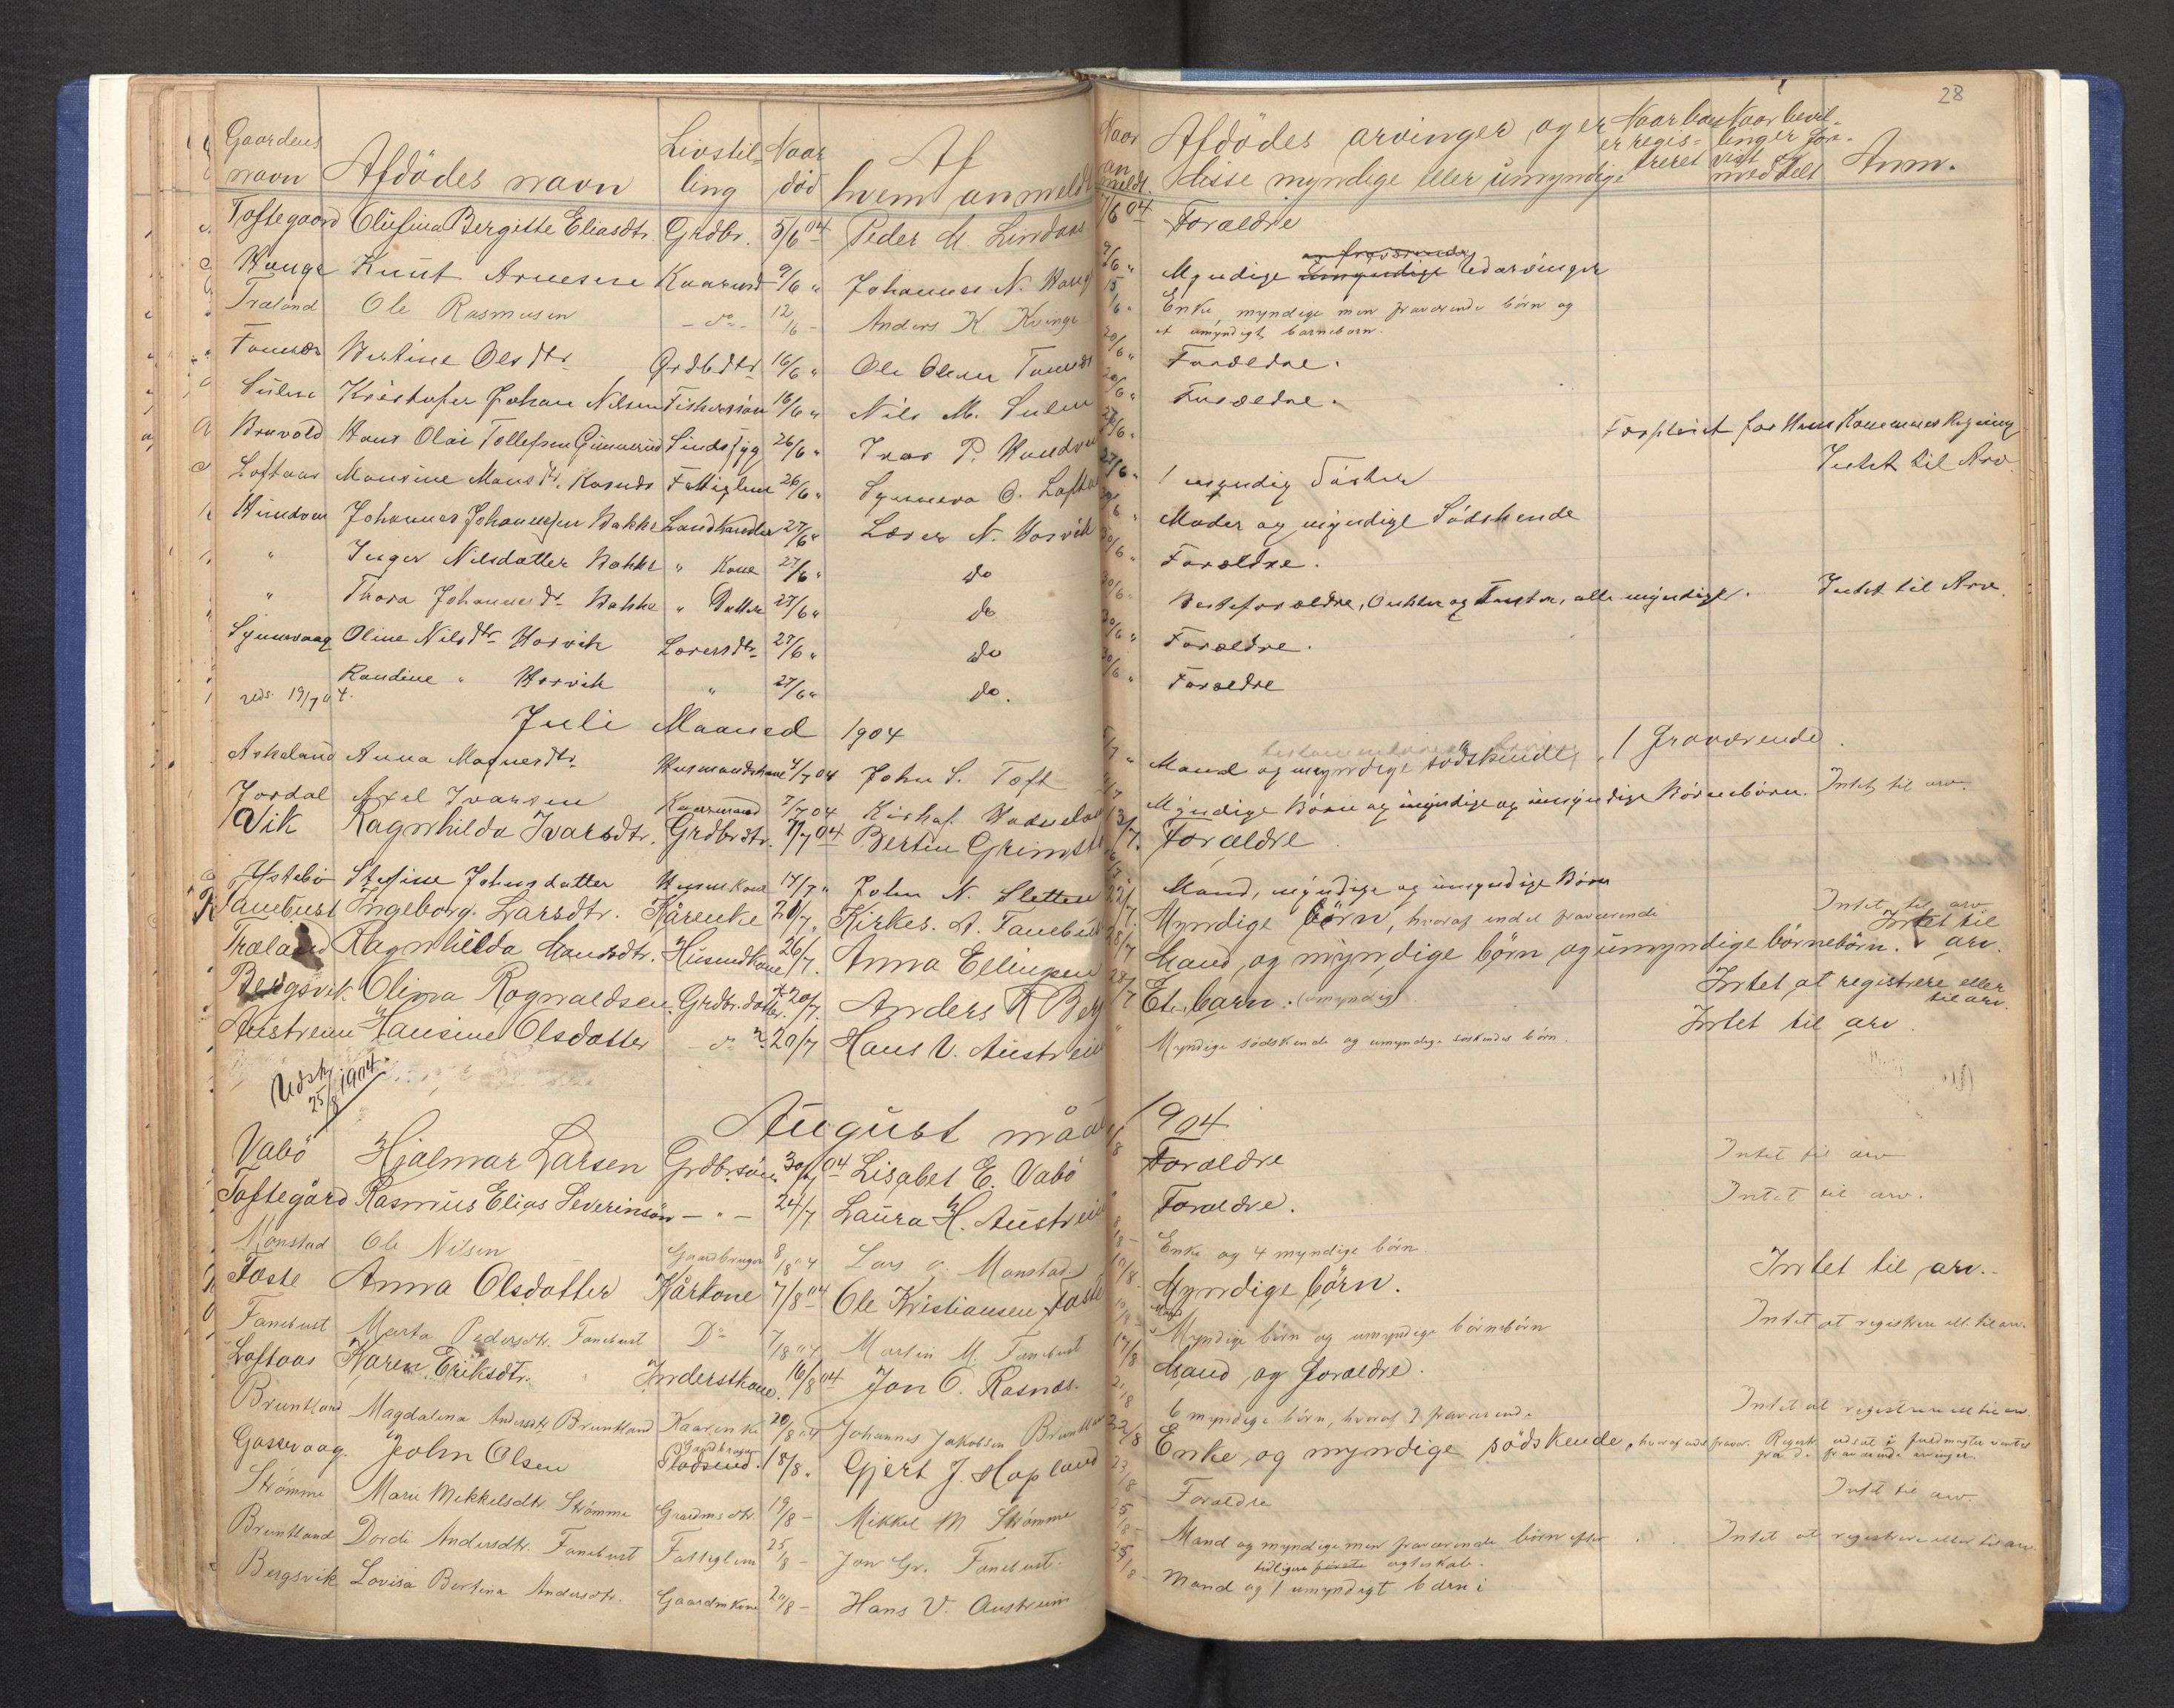 28
Gaardens navn | Afdödes navn | Livstilling | Naar död | Af hvem anmeldt | Naar anmeldt. | Afdödes arvinger og er disse myndige eller umyndige | Naar boet er registreret | Naar bevillinger forvist meddelt | Anm.
Toftegaard | Olufina Bergitte Eliasdtr. | Grdbr. | 5/6 04 | Peder M. Lindaas | 7/6 04 | Forældre
Hauge | Knut Arnesen | Kaarmd | 9/6 " | Johannes N. Haug | 9/6 " | Myndige Udarvinger
Træland | Ole Rasmusen | - do - | 12/6 - | Anders K. Kvinge | 15/6 " | Enke, myndige men fraværende børn og
et umyndigt barnebarn.
Bertine Olsdtr. | Grdbdtr | 16/6 " | Ole Olsen | 20/6 " | Forældre.
Sulen | Kristofer Johan Nilsen | Fiskersøn | 16/6 " | Nils M. Sulen | 20/6 " | Forældre.
Bruvold | Hans Olai Tollefsen | Sindssyg | 26/6 " | Ivar P. | 27/6 " | Forpleiet for Hans Kommunes Regning
Intet til Arv.
Loftaas | Monsine Monsdtr. | Fattiglem | 26/6 " | Synneva O. Lofta | 27/6 " | 1 myndig Søster
Hundven | Johannes Johannessen Bakke | Landhandler | 27/6 " | Lærer N. Horvik | 30/6 " | Moder og myndige Södskende
" | Inger Nilsdatter Bakke | " Kone | 27/6 " | do | 30/6 " | Forældre.
" | Thora Johannesdtr. Bakke | " Datter | 27/6 " | do | 30/6 " | Besteforældre, Onkler og Tanter, alle myndige. | Intet til Arv.
Synnevaag | Oline Nilsdtr. Horvik | Lærersdtr. | 27/6 " | do | 30/6 " | Forældre.
Randine " Horvik | " | 27/6 " | do. | 30/6 " | Forældre
19/7 04.
Juli Maaned 1904
Askeland | Anna Magnesdtr. | Husmandskone | 4/7 04 | John S. Toft | 5/7 " | Mand og myndige södskende, 1 fraværende.
Jordal | Axel Ivarsen | Kaarmand | 7/7 04 | Kirks. | Myndige Börn og myndige og umyndige Börnebörn. | Intet til arv.
Vik | Ragnhilda Ivarsdtr. | Grdbrdtr. | 11/7 04 | Bertin Grimst | 13/7. | Forældre
Ystebö | Stefine Johnsdatter | Husmkone | 14/7 " | John N. Sletten | Mand, myndige og umyndige Börn | Intet til arv
Fanebust | Ingeborg. Larsdtr. | Kårenke | 20/7. | Kirkes. A. Fanebus | 22/7 | Myndige börn, hvoraf endel fraværende | Intet til
Træland | Ragnhilda Mansdtr. | Husmdkone | 26/7. | Anna Ellingsen | 28/7 | Mand, og myndige börn og umyndige börnebörn. | arv.
Bergsvik. | Olina Rognvaldsen. | Grdbr. datter. | 20/7. | Anders R Berg | 28/7 | Et barn. (umyndig) | Intet at registrere eller til arv.
Austreim | Hansine Olsdatter | - do - | 20/7 | Hans V. Austreim | " | Myndige södskende og umyndige söskendes börn. | Intet til arv.
Udskr. 25/8 1904.
August måned 1904
Vabö | Hjalmar Larsen | Grdbrsön. | 30/7 04 | Lisabet E. Vabö | Forældre | Intet til arv
Toftegård | Rasmus Elias Severinsön | - " - | 24/7 | Laura H. Austreim | " | Forældre. | Intet til arv.
Monstad | Ole Nilsen | Gaardbruger | 8/8 04 | Lars O. Monstad | 8/8 - | Enke og 4 myndige börn.
Foste | Anna Olsdatter | Kårkone | 7/8 04 | Ole Kristiansen Foste | 10/8. | Myndige börn. | Intet til arv.
Fanebust | Marta Pedersdtr. Fanebust | Do | 7/8 04 | Martin M. Fanebust | Mand Myndige börn og umyndige börnebörn | Intet at registrere ell. til arv.
Loftaas | Karen Eriksdtr. | Inderstkone. | 16/8 04 | Jon O. Rosnæs. | 17/8 | Mand, og forældre.
Bruntland | Magdalena Andersdtr. Bruntland | Kaarenke | 20/8 04 | Johannes Jakobsen Bruntland | 21/8 | 6 myndige börn, hvoraf 2 fraværende | Intet at registrere ell til arv.
Gaasvaag. | John Olsen | Gaardbruger Pladsmd. | 18/8. | Gjert J. Hopland | 22/8 | Enke, og myndige södskende, | fraværende arvinger.
Strömme | Marie Mikkelsdtr. Strömme | Gaardmsdtr. | 19/8 - | Mikkel M Strömme | 23/8 | Forældre | Intet til arv.
Bruntland | Dordi Andersdtr. Fanebust | Fattiglem | 25/8 - | Jon Gr. Fanebust. | 25/8 - | Mand og myndige men fraværende börn efter | Intet at registrere eller til arv.
tidligere ægteskab.
Bergsvik | Lovisa Bertina Andersdtr. | Gaardmkone | 20/8 - | Hans V. Austreim | 25/8 - | Mand og 1 umyndigt barn i